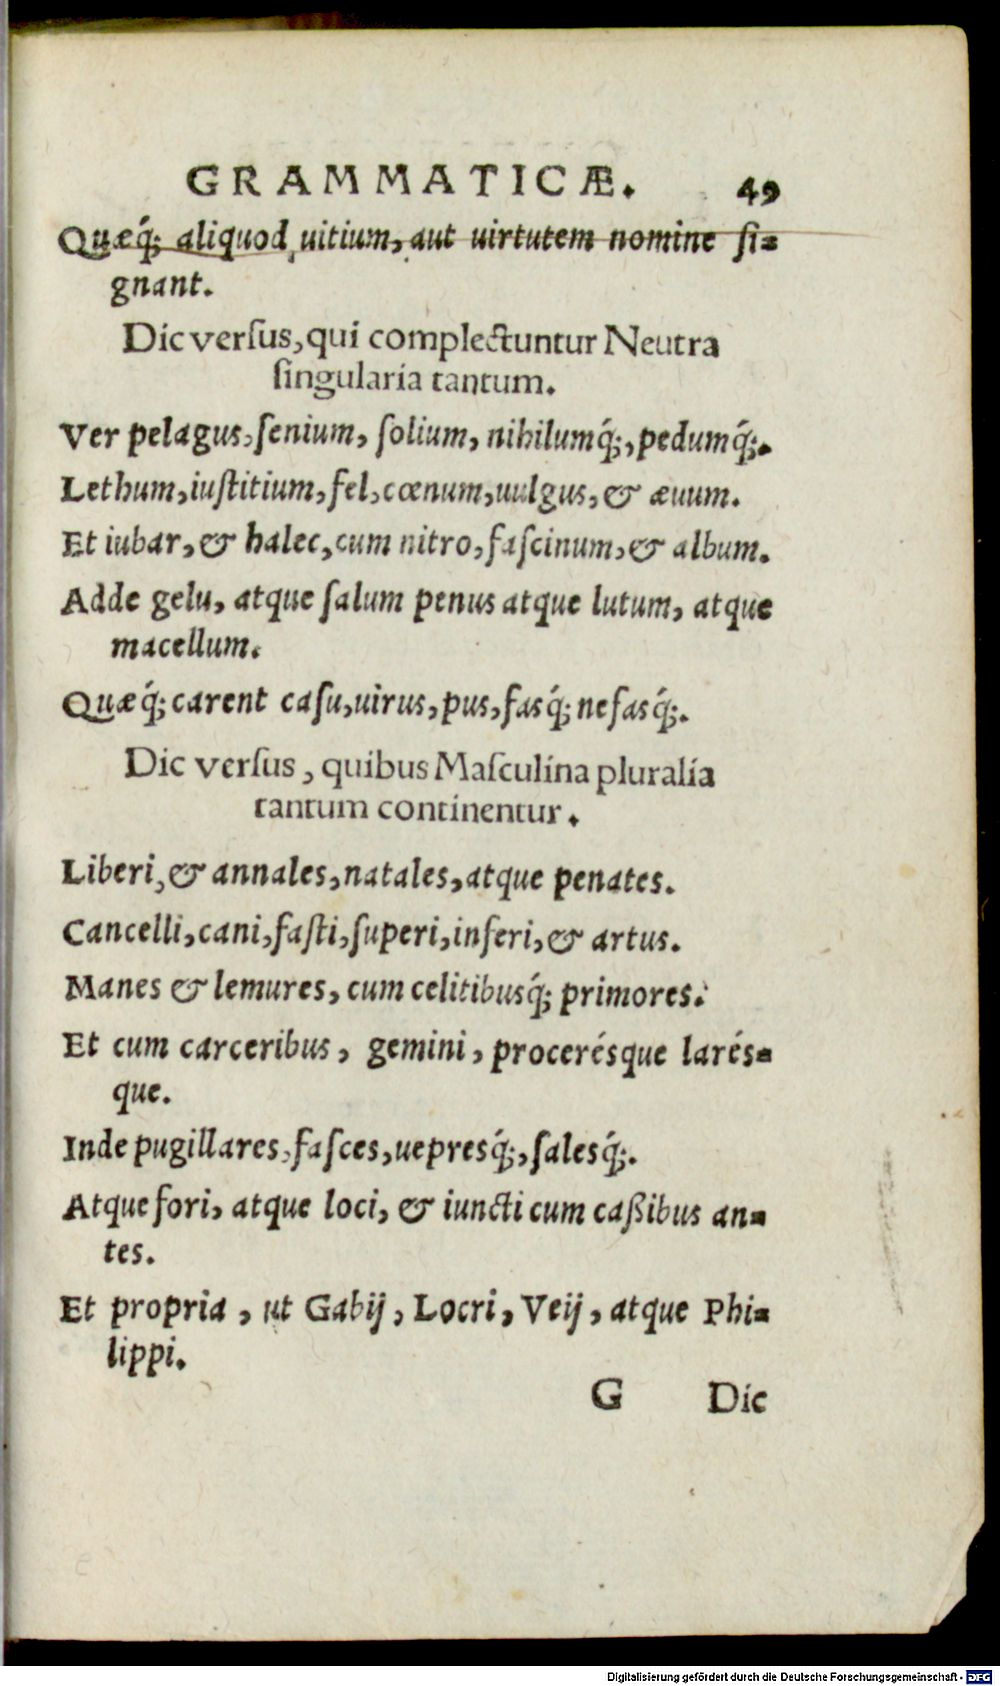 GRAMMATICÆ. 49
Quæq́; aliquod uitium, aut uirtutem nomine ſi-
gnant.
Dic verſus, qui complectuntur Neutra
ſingularia tantum.
Ver pelagus, ſenium, ſolium, nihilumq́;, pedumq́;.
Lethum, iuſtitium, fel, cœnum, uulgus, & æuum.
Et iubar, & halec, cum nitro, faſcinum, & album.
Adde gelu, atque ſalum penus atque lutum, atque
macellum.
Quæq́; carent caſu, uirus, pus, fasq́; nefasq́;.
Dic verſus, quibus Maſculina pluralia
tantum continentur.
Liberi, & annales, natales, atque penates.
Cancelli, cani, faſti, ſuperi, inferi, & artus.
Manes & lemures, cum celitibusq́; primores.
Et cum carceribus, gemini, procerésque larés-
que.
Inde pugillares, faſces, uepresq́;, ſalesq́;.
Atque fori, atque loci, & iuncti cum caßibus an-
tes.
Et propria, ut Gabij, Locri, Veij, atque Phi-
lippi.
G Dic
Digitalisierung gefördert durch die Deutsche Forschungsgemeinschaft - DFG